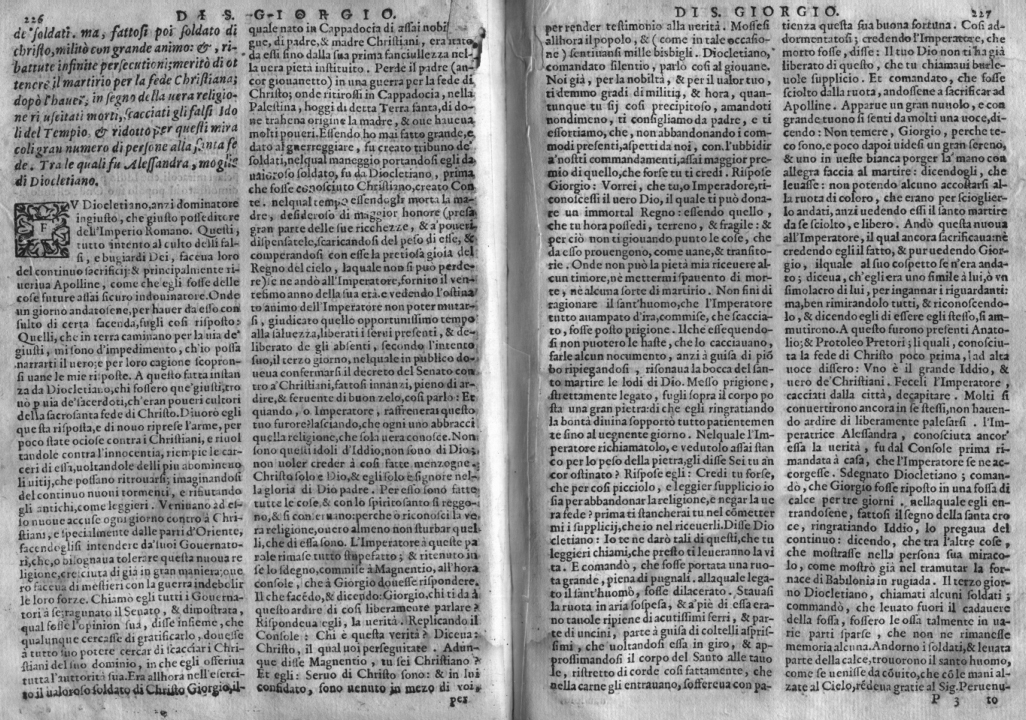 226 DI S. GIORGIO.
de' soldati. ma, fattosi poi soldato di
christo, militò con grande animo: &, ri-
battute infinite persecutioni; meritò di ot
tenere il martirio per la fede Christiana;
dopò l'hauer, in segno della uera religio-
ne risuscitati morti, scacciati gli falsi Ido
li del Tempio, & ridotto per questi mira
coli gran numero di persone alla santa fe
de. Tra le quali fu Alessandra, moglie
di Diocletiano.
FV Diocletiano, anzi dominatore
ingiusto, che giusto posseditore
dell'Imperio Romano. Questi,
tutto intento al culto delli fal-
si, e bugiardi Dei, faceua loro
del continuo sacrificij: & principalmente ri-
ueriua Apolline, come che egli fosse delle
cose future assai sicuro indouinatore. Onde
un giorno andatosene, per hauer da esso con
sulto di certa facenda, fugli così risposto:
Quelli, che in terra caminano per la uia de'
giusti, mi sono d'impedimento, ch'io possa
narrarti il uero: e per loro cagione scopron-
si uane le mie risposte. A questo fatta instan
za da Diocletiano, chi fossero que' giusti, tro
uò p uia de' sacerdoti, ch'eran poueri cultori
della sacrosanta fede di Christo. Diuorò egli
questa risposta, e di nouo riprese l'arme, per
poco state ociose contra i Christiani, e riuol
tandole contra l'innocentia, riempie le car-
ceri di essa, uoltandole delli piu abomineuo
li uitij, che possano ritrouarsi; imaginandosi
del continuo nuoui tormenti, e rifiutando
gli antichi, come leggieri. Veniuano ad es-
so nuoue accuse ogni giorno contro à Chri-
stiani, e specialmente dalle parti d'Oriente,
facendoglisi intendere da' suoi Gouernato-
ri, che, o bisognaua tolerare questa nuoua re
ligione, cresciuta di già in gran maniera; oue
ro faceua di mestieri con la guerra indebolir
le loro forze. Chiamò egli tutti i Gouerna-
tori à se; ragunato il Senato, & dimostrata,
qual fosse l'opinion sua, disse insieme, che
qualunque cercasse di gratificarlo, douesse
a tutto suo potere cercar di scacciar i Chri-
stiani del suo dominio, in che egli offeriua
tutta l'auttorità sua. Era allhora nell'eserci-
to il ualoroso soldato di Christo Giorgio, il-
quale nato in Cappadocia di assai nobi
gue, di padre, & madre Christiani, era stato
da essi fino dalla sua prima fanciullezza nel-
la uera pietà instituito. Perdè il padre (an-
cor giouanetto) in una guerra per la fede di
Christo; onde ritirossi in Cappadocia, nella
Palestina, hoggi di detta Terra santa, di do-
ne traheua origine la madre, & oue haueua
molti poueri. Essendo homai fatto grande, e
dato al guerreggiare, fu creato tribuno de'
soldati, nel qual maneggio portandosi egli da
ualoroso soldato, fu da Diocletiano, prima
che fosse conosciuto Christiano, creato Con
te. nel qual tempo essendogli morta la ma-
dre, desideroso di maggior honore (presa
gran parte delle sue ricchezze, & a' poueri
dispensatele, scaricandosi del peso di esse, &
comperandosi con esse la pretiosa gioia del
Regno del cielo, laquale non si può perde-
re) se ne andò all'Imperatore, fornito il ven-
tesimo anno della sua età. e vedendo l'ostina
to animo dell'Imperatore non poter mutar-
si, giudicato quello opportunissimo tempo
alla saluezza, liberati i serui presenti, & de-
liberato de gli absenti, secondo l'intento
suo, il terzo giorno, nelquale in publico do-
ueua confermarsi il decreto del Senato con-
tro a' Christiani, fattosi innanzi, pieno di ar-
dire, & feruente di buon zelo, così parlo: Et
quando, o Imperatore, raffrenerai questo
tuo furore? lasciando, che ogni uno abbracci
quella religione, che sola uera conosce. Non
sono questi idoli d'Iddio, non sono di Dio;
non uoler creder à così fatte menzogne.
Christo solo e Dio, & egli solo è signore nel-
la gloria di Dio padre. Per esso sono fatte
tutte le cose, & con lo spirito santo si reggo-
no, & si conseruano: perche ò riconosci la ve
ra religione, ouero almeno non sturbar quel-
li, che di essa sono. L'Imperatore à queste pa
role rimase tutto stupefatto; & ritenuto in
se lo sdegno, commise à Magnentio, all'hora
console, che à Giorgio douesse rispondere.
Il che facêdo, & dicendo: Giorgio, chi ti dà à
questo ardire di così liberamente parlare?
Rispondeua egli, la uerità. Replicando il
Console: Chi è questa verità? Diceua:
Christo, il qual uoi perseguitate. Adun-
que disse Magnentio, tu sei Christiano?
Et egli: Seruo di Christo sono: & in lui
confidato, sono uenuto in mezo di voi,
per
DI S. GIORGIO. 227
per render testimonio alla verità. Mossesi
allhora il popolo, & (come in tale occasio-
ne) sentiuansi mille bisbigli. Diocletiano,
comandato silentio, parlò così al giouane.
Noi già, per la nobiltà, & per il ualor tuo,
ti demmo gradi di militia, & hora, quan-
tunque tu sij così precipitoso, amandoti
nondimeno, ti consigliamo da padre, e ti
essortiamo, che, non abbandonando i com-
modi presenti, aspetti da noi, con l'ubbidir
a' nostri commandamenti, assai maggior pre-
mio di quello, che forse tu ti credi. Rispose
Giorgio: Vorrei, che tu, o Imperadore, ri-
conoscessi il uero Dio, il quale ti può dona-
re un immortal Regno: essendo quello,
che tu hora possedi, terreno, & fragile: &
perciò non ti giouando punto le cose, che
da esso prouengono, come uane, & transito-
rie. Onde non può la pietà mia riceuere al-
cun timore, nè mettermi spauento di mor-
te, nè alcuna sorte di martirio. Non finì di
ragionare il sant'huomo, che l'Imperatore
tutto auampato d'ira, commise, che scaccia-
to, fosse posto prigione. Ilche essequendo-
si non puotero le haste, che lo cacciauano,
farle alcun nocumento, anzi à guisa di piõ
bo ripiegandosi, risonaua la bocca del san-
to martire le lodi di Dio. Messo prigione,
strettamente legato, fugli sopra il corpo po
sta una gran pietra: di che egli ringratiando
la bontà diuina sopportò tutto patientemen
te sino al uegnente giorno. Nelquale l'Im-
peratore richiamatolo, e vedutolo assai stan
co per lo peso della pietra, gli disse Sei tu an
cor ostinato? Rispose egli: Credi tu forse,
che per così piccolo, e leggier supplicio io
sia per abbandonar la religione, e negar la ue
ra fede? prima ti stancherai tu nel cõmetter
mi i supplicij, che io nel riceuerli. Disse Dio
cletiano: Io te ne darò tali di questi, che tu
leggieri chiami, che presto ti leueranno la vi
ta. E comandò, che fosse portata una ruo-
ta grande, piena di pugnali. alla quale lega-
to il sant'huomo, fosse dilacerato. Stauasi
la ruota in aria sospesa, & a' piè di essa era-
no tauole ripiene di acutissimi ferri, & par-
te di uncini, parte à guisa di coltelli asprìs-
simi, che uoltandosi essa in giro, & ap-
prossimandosi il corpo del Santo alle tauo
le, ristretto di corde così fattamente, che
nella carne gli entrauano, soffereua con pa-
tienza questa sua buona fortuna. Così ad-
dormentatosi; credendo l'Imperatore, che
morto fosse, disse: Il tuo Dio non ti ha già
liberato di questo, che tu chiamaui burle-
uole supplicio. Et comandato, che fosse
sciolto dalla ruota, andossene a sacrificar ad
Apolline. Apparue un gran nuuolo, e con
grande tuono si senti da molti una uoce, di-
cendo: Non temere, Giorgio, perche te-
co sono. e poco dapoi uidesi un gran sereno,
& uno in ueste bianca porger la mano con
allegra faccia al martire: dicendogli, che
leuasse: non potendo alcuno accostarsi al-
la ruota di coloro, che erano per scioglier-
lo andati, anzi uedendo essi il santo martire
da se sciolto, e libero. Andò questa nuoua
all'Imperatore, il qual ancora sacrificaua: nè
credendo egli il fatto, & pur uedendo Gior-
gio, ilquale al suo cospetto se n'era anda-
to; diceua, ch'egli era uno simile à lui, ò vn
simolacro di lui, per ingannar i riguardanti:
ma, ben rimirandolo tutti, & riconoscendo-
lo, & dicendo egli di essere egli stesso, si am-
mutirono. A questo furono presenti Anato-
lio; & Protoleo Pretori; li quali, conosciu-
ta la fede di Christo poco prima, ad alta
uoce dissero: Vno è il grande Iddio, &
uero de' Christiani. Feceli l'Imperatore,
cacciati dalla città, decapitare. Molti si
conuertirono ancora in se stessi, non hauen-
do ardire di liberamente palesarsi. l'Im-
peratrice Alessandra, conosciuta ancor'
essa la uerità, fu dal Console prima ri-
mandata à casa, che l'Imperatore se ne ac-
corgesse. Sdegnato Diocletiano; coman-
dò, che Giorgio fosse riposto in una fossa di
calce per tre giorni nellaquale egli en-
trandosene, fattosi il segno della santa cro
ce, ringratiando Iddio, lo pregaua del
continuo: dicendo, che tra l'altre cose,
che mostrasse nella persona sua miraco-
lo, come mostrò già nel tramutar la for-
nace di Babilonia in rugiada. Il terzo gior-
no Diocletiano, chiamati alcuni soldati;
commandò, che leuato fuori il cadauere
della fossa, fossero le ossa talmente in ua-
rie parti sparse, che non ne rimanesse
memoria alcuna. Andorno i soldati, & leuata
parte della calce, trouorono il santo huomo,
come se uenisse da cõuito, che cõ le mani al-
zate al Cielo, rẽdeua gratie al Sig. Peruenu-
P 3 to